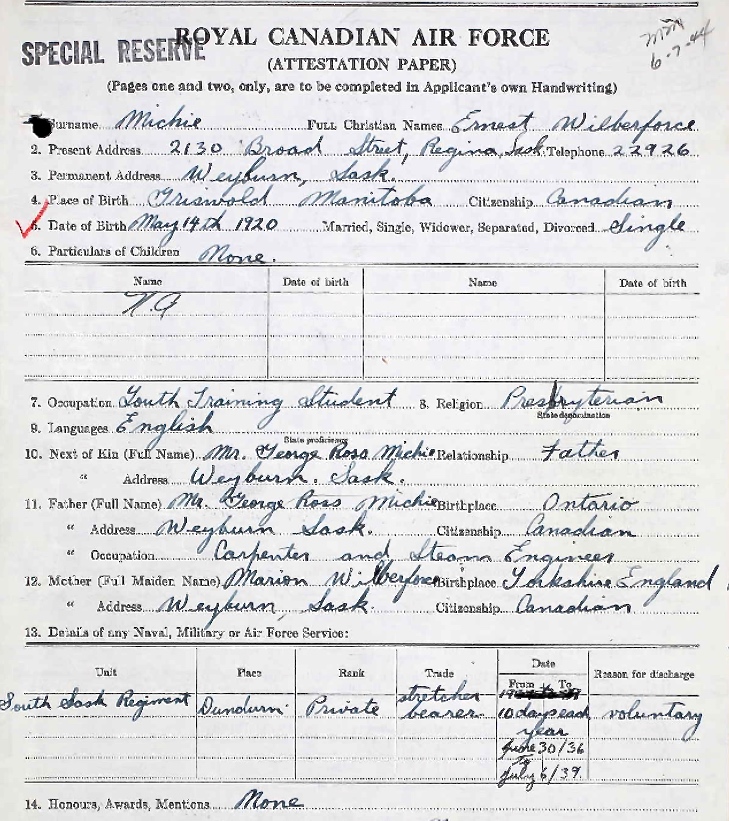 SPECIAL RESERVE
ROYAL CANADIAN AIR FORCE
6-7-44
(ATTESTATION PAPER)
(Pages one and two, only, are to be completed in Applicant's own Handwriting)
Surname Michie Full Christian Names Ernest Wilberforce
2. Present Address 2130 Broad Street, Regina, Sask. Telephone 22926
3. Permanent Address Weyburn, Sask.
4. Place of Birth Griswold Manitoba Citizenship Canadian
5. Date of Birth May 14th 1920 Married, Single, Widower, Separated, Divorced Single
6. Particulars of Children None.
Name Date of birth Name Date of birth
N.A
7. Occupation Youth Training Student 8. Religion Presbyterian
State denomination
9. Languages English
State proficiency
10. Next of Kin (Full Name) Mr. George Ross Michie Relationship Father
" Address Weyburn. Sask.
11. Father (Full Name) Mr. George Ross Michie Birthplace Ontario
" Address Weyburn Sask. Citizenship Canadian
" Occupation Carpenter and Steam Engineer
12. Mother (Full Maiden Name) Marion Wilberforce Birthplace Yorkshire England
" Address Weyburn, Sask. Citizenship Canadian
13. Details of any Naval, Military or Air Force Service:
Unit Place Rank Trade Date From To Reason for discharge
South Sask Regiment Dundurn Private stretcher bearer 10 days each year June 30/36 to July 6/39 voluntary
14. Honours, Awards, Mentions None